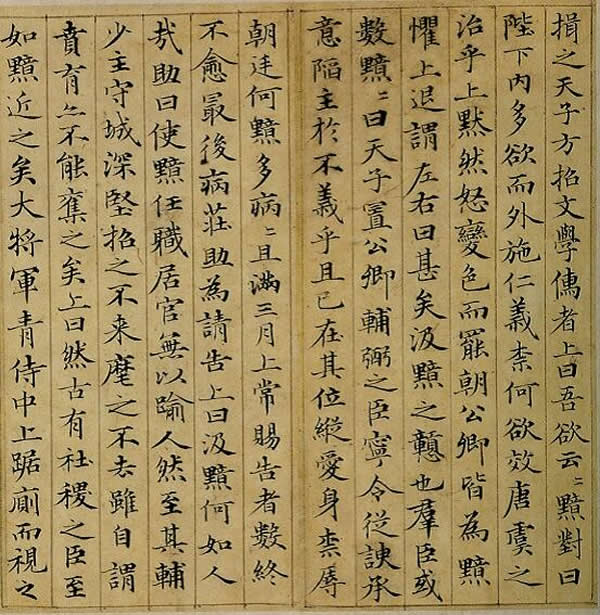 揖之天子方招文學儒者上曰吾欲云〻黯對曰
陛下內多欲而外施仁義柰何欲效唐虞之
治乎上默然怒變色而罷朝公卿皆為黯
懼上退謂左右曰甚矣汲黯之戇也羣臣或
數黯〻曰天子置公卿輔弼之臣寧令從諛承
意陷主於不義乎且已在其位縱愛身柰辱
朝廷何黯多病〻且滿三月上常賜告者數終
不愈最後病莊助為請告上曰汲黯何如人
哉助曰使黯任職居官無以踰人然至其輔
少主守城深堅招之不来麾之不去雖自謂
賁育亦不能奪之矣上曰然古有社稷之臣至
如黯近之矣大將軍青侍中上踞廁而視之